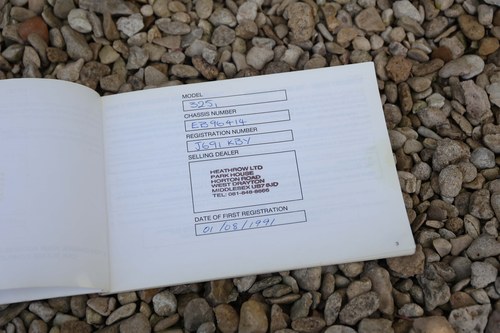 MODEL
325i
CHASSIS NUMBER
EB96414
REGISTRATION NUMBER
J691 KBY
SELLING DEALER
HEATHROW LTD
PARK HOUSE
HORTON ROAD
WEST DRAYTON
MIDDLESEX UB7 8JD
TEL: 081-848-8865
DATE OF FIRST REGISTRATION
01/08/1991